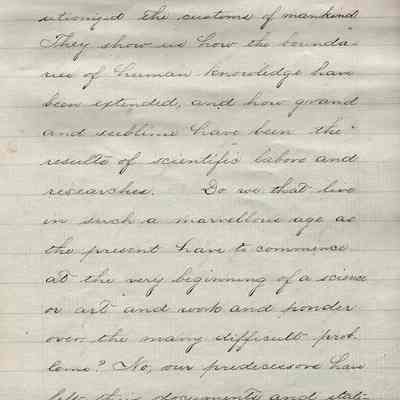 utionized the customs of mankind
They show us how the bounda-
ries of human knowledge have
been extended, and how grand
and sublime have been the
results of scientific labors and
researches. Do we that live
in such a marvellous age as
the present have to commence
at the very beginning of a science
or art and work and ponder
over the many difficult prob-
lems? No, our predecessors have
left their documents and stati-